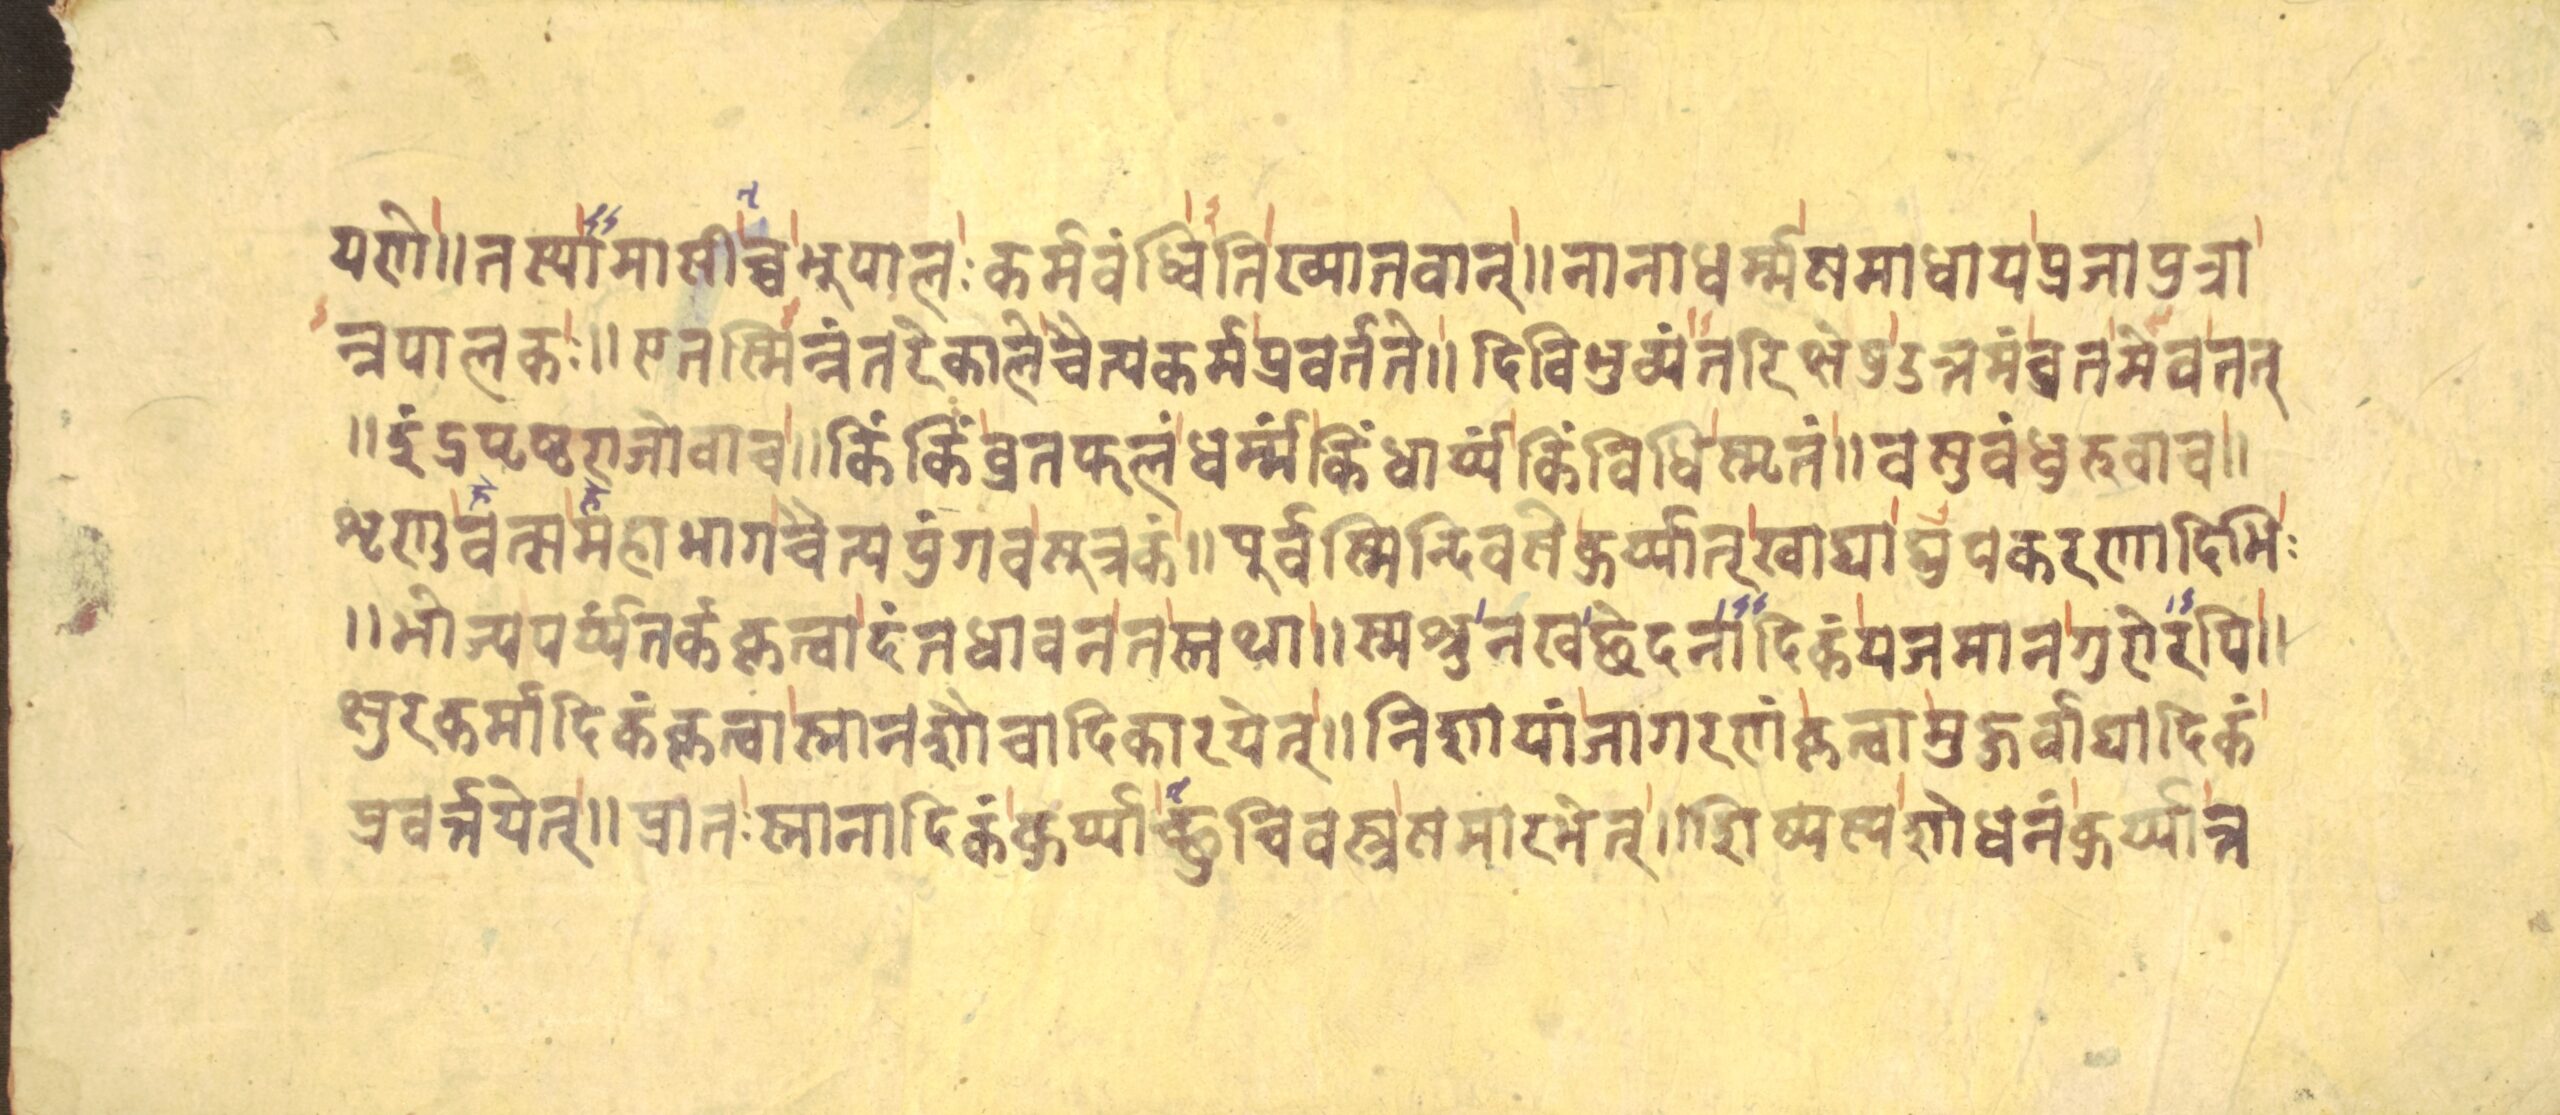 यणे॥तस्यामासीच्चभुपालःकर्मवंध्वितिख्यातवान्॥नानाधर्म्मसमाधायप्रजापुत्रा
न्नपालकः॥एतस्मिन्नंतरेकालेचैत्यकर्मप्रवर्तते॥दिविभुव्यंतरिक्षेषुउत्तमंव्रतमेवतत्
॥इंद्रपृष्ठराजोवाच॥किंकिंव्रतफलंधर्म्मंकिंधार्य्यंकिंविधिस्मृतं॥वसुवंधुरुवाच॥
शृणुवत्समहाभागचैत्यपुंगवसुत्रकं॥पुर्वस्मिन्दिवसेकुर्य्यात्खाद्याद्युपकरणादिभिः
॥भोज्यपर्य्यतर्ककृत्वादंतधावनतस्तथा॥स्मश्रुनखछेदनादिकंयजमानगुरोरपि॥
क्षुरकर्मादिकंकृत्वास्नानशौचादिकारयेत्॥निशायांजागरणंकृत्वामुरुर्जवाद्यादिकं
प्रवर्त्तयेत्॥प्रातःस्नानादिकंकुर्य्याच्छुचिवस्त्रसमारभेत्॥शिष्यस्यशोधनंकुर्य्यात्त